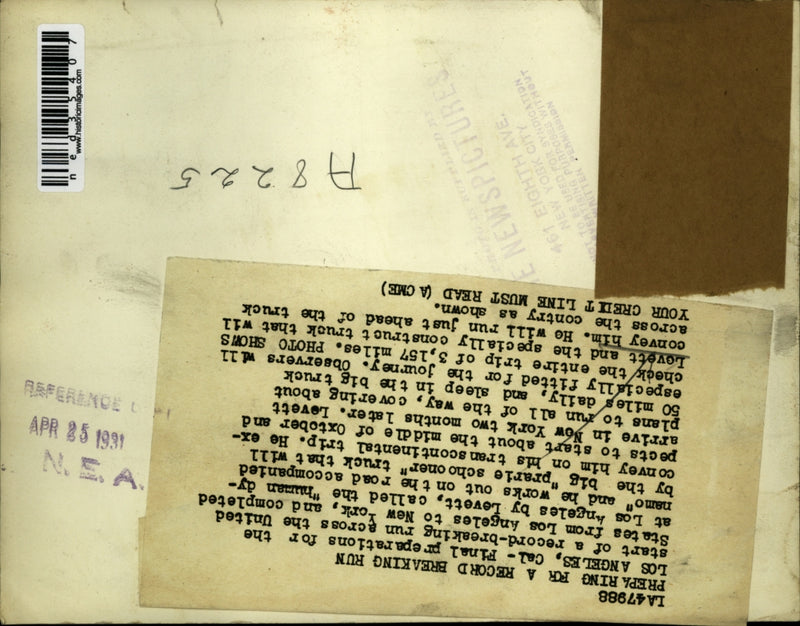 LA47988
PREPARING FR A RECORD BREAKING RUN
LOS ANGELES, Cal - Final preparations for the
start of a record-breaking run across the United
States from Los Angeles to New York, and completed
at Los Angeles by Levett, called the "human dy-
namo" and he works out on the road accompanied
by the big "prarie schooner" truck that will
convey him on his transcontinental trip. He ex-
pects to start about the middle of October and
arrive in New York two months later. Levett
plans to run all of the way, covering about
50 miles daily, and sleep in the big truck
especially fitted for the journey. Observers will
check the entire trip of 3,157 miles. PHOTO SHOWS
Levett and the specially construct truck that will
convey him. He will run just ahead of the truck
across the contry as shown.
YOUR CREDIT LINE MUST READ (A CME)
A8225
NEWSPICTURES
461 EIGHTH AVE.
NEW YORK CITY
REFERENCE
APR 25 1931
N. E. A.
ned35407
www.historicimages.com